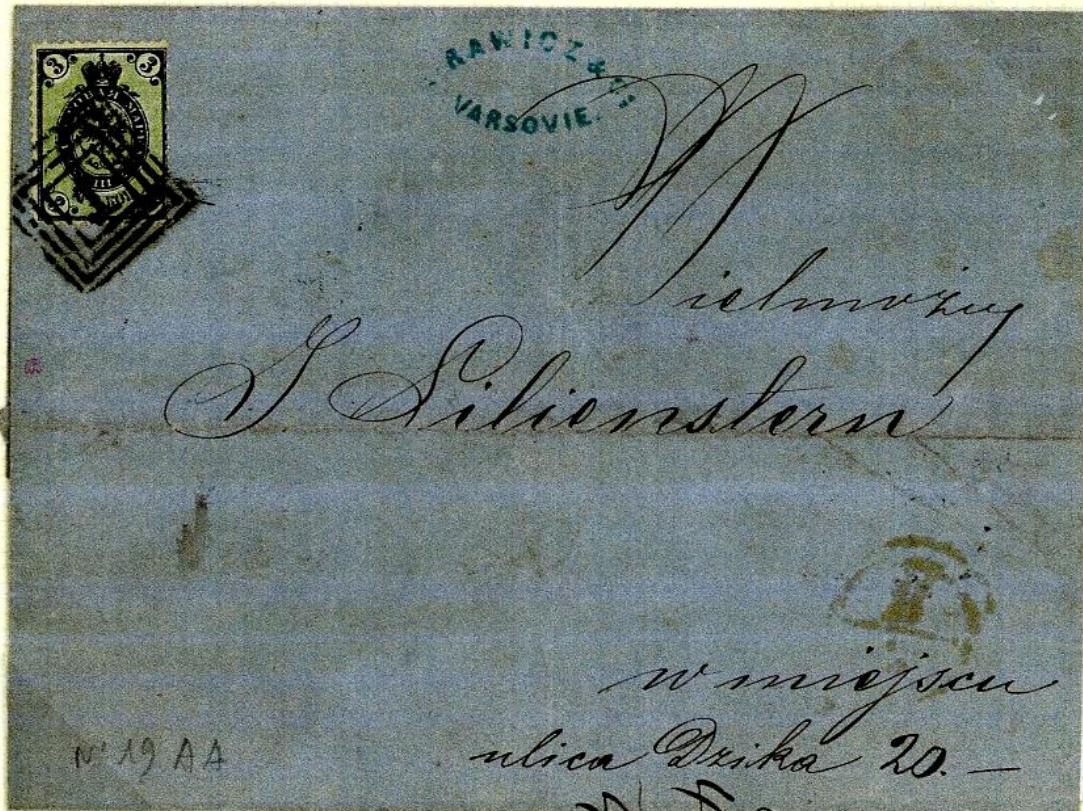 3 3
RAWICZ & C
VARSOVIE.
Wielmożny
J Lilienstern
w miejscu
ulica Dzika 20. —
N° 19 AA